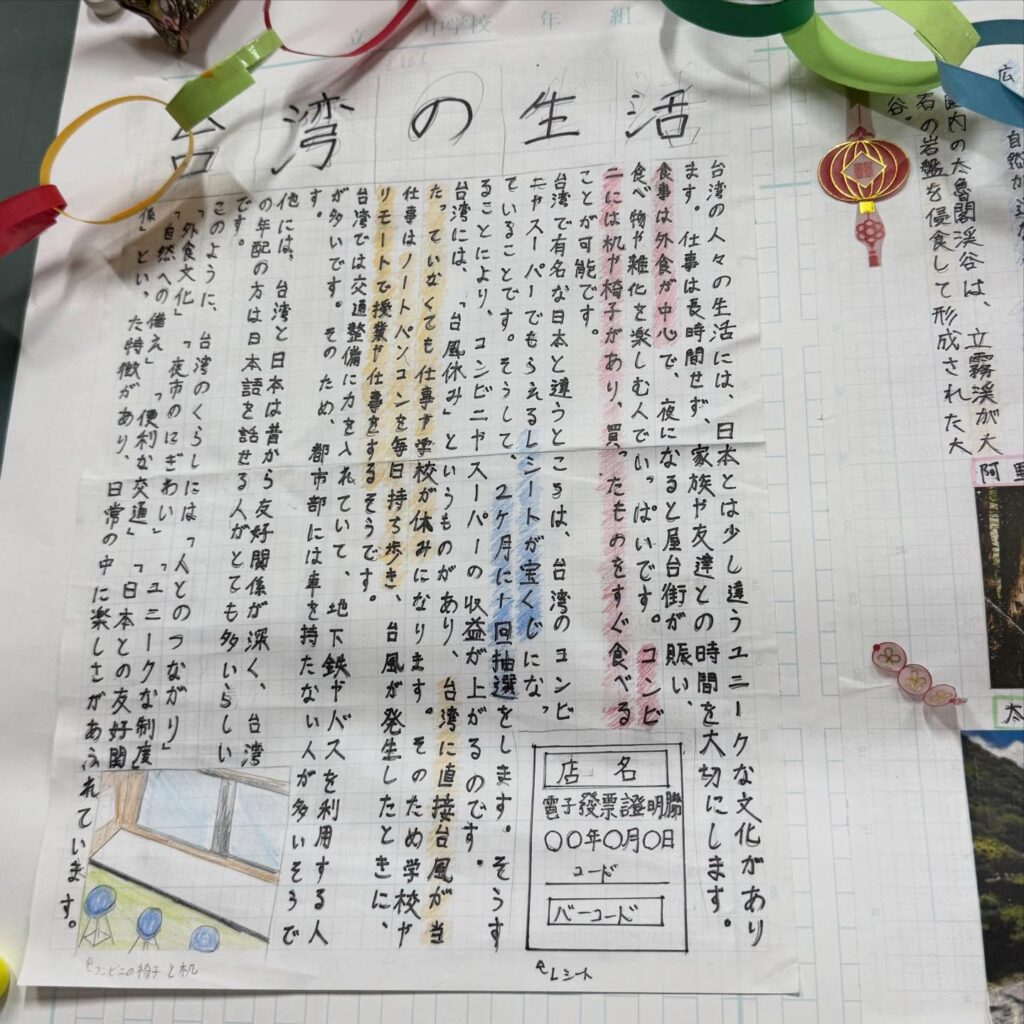 中学校 年 組
台湾の生活
台湾の人々の生活には、日本とは少し違うユニークな文化があり
ます。仕事は長時間せず、家族や友達との時間を大切にします。
食事は外食が中心で、夜になると屋台街が賑い、
食べ物や雑化を楽しむ人でいっぱいです。コンビ
ニには机や椅子があり、買ったものをすぐ食べる
ことが可能です。
台湾で有名な日本と違うところは、台湾のコンビ
ニやスーパーでもらえるレシートが宝くじになっ
ていることです。そうして、2ヶ月に十回抽選をします。そうす
ることにより、コンビニやスーパーの収益が上がるのです。
台湾には、「台風休み」というものがあり、台湾に直接台風が当
たっていなくても仕事や学校が休みになります。そのため学校や
仕事はノートパソコンを毎日持ち歩き、台風が発生したときに、
リモートで授業や仕事をするそうです。
台湾では交通整備に力を入れていて、地下鉄やバスを利用する人
が多いです。そのため、都市部には車を持たない人が多いそうで
す。
他には、台湾と日本は昔から友好関係が深く、台湾
の年配の方は日本語を話せる人がとても多いらしい
です。
このように、台湾のくらしには「人とのつながり」
「外食文化」「夜市のにぎわい」「ユニークな制度」
「自然への備え」「便利な交通」「日本との友好関
係」といった特徴があり、日常の中に楽しさがあふれています。
店名
電子發票證明聯
〇〇年〇月〇日
コード
バーコード
レシート
コンビニの椅子と机
広
園内の太魯閣渓谷は、立霧渓が大
石の岩盤を侵食して形成された大
谷。
阿里
太